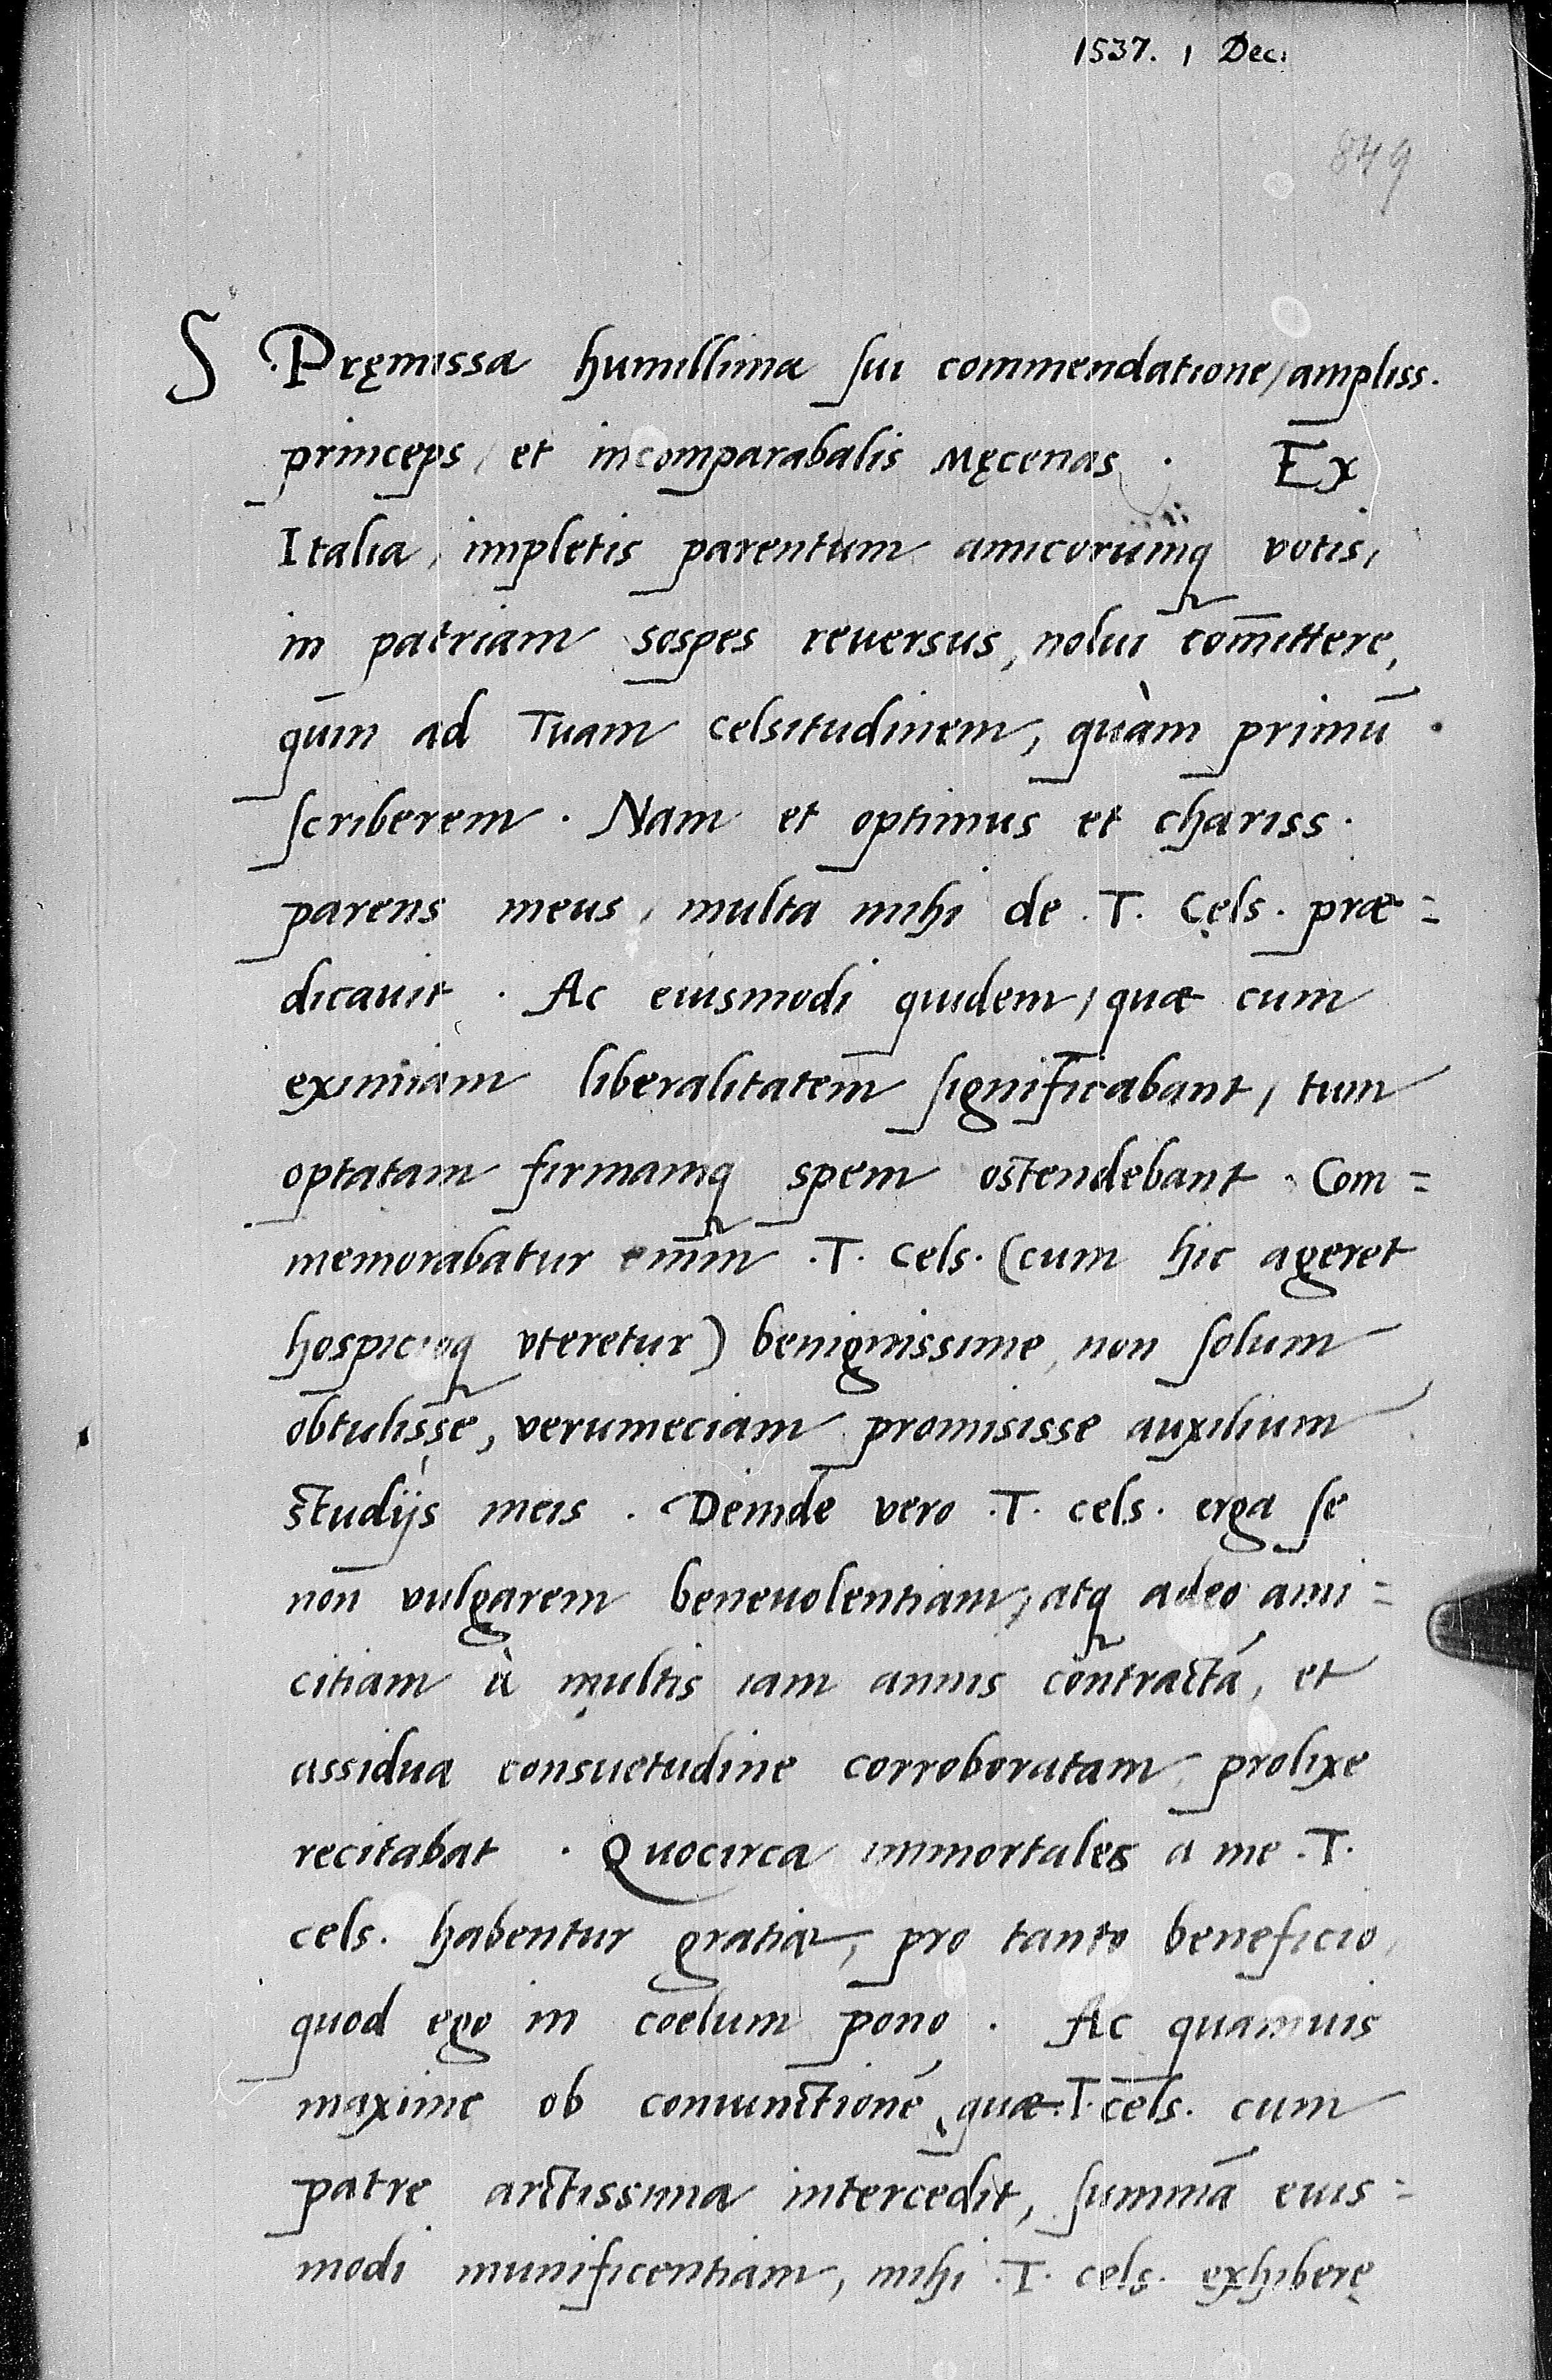 1537. 1 Dec.
849
S Pręmissa humillima sui commendatione, ampliss.
princeps, et incomparabalis Męcenas. Ex
Italia, impletis parentum amicorumq votis,
in patriam sospes reuersus, nolui com̄ittere,
quin ad Tuam celsitudinem, quàm primū
scriberem. Nam et optimus et chariss.
parens meus, multa mihi de .T. Cels. præ=
dicauit. Ac eiusmodi quidem, quæ cum
eximiam liberalitatem significabant, tum
optatam firmamq spem ostendebant. Com=
memorabatur enim .T. Cels. (cum hic ageret
hospicioq vteretur) benignissime, non solum
obtulisse, verumeciam promisisse auxilium
studijs meis. Deinde vero .T. cels. erga se
non vulgarem beneuolentiam, atq adeo ami=
citiam à multis iam annis contractā, et
assidua consuetudine corroboratam, prolixe
recitabat. Quocirca immortales a me .T.
cels. habentur gratiæ, pro tanto beneficio,
quod ego in coelum pono. Ac quamuis
maxime ob coniunctionē, quæ .T. cels. cum
patre arctissima intercedit, summā eius=
modi munificentiam, mihi .T. cels. exhiberę